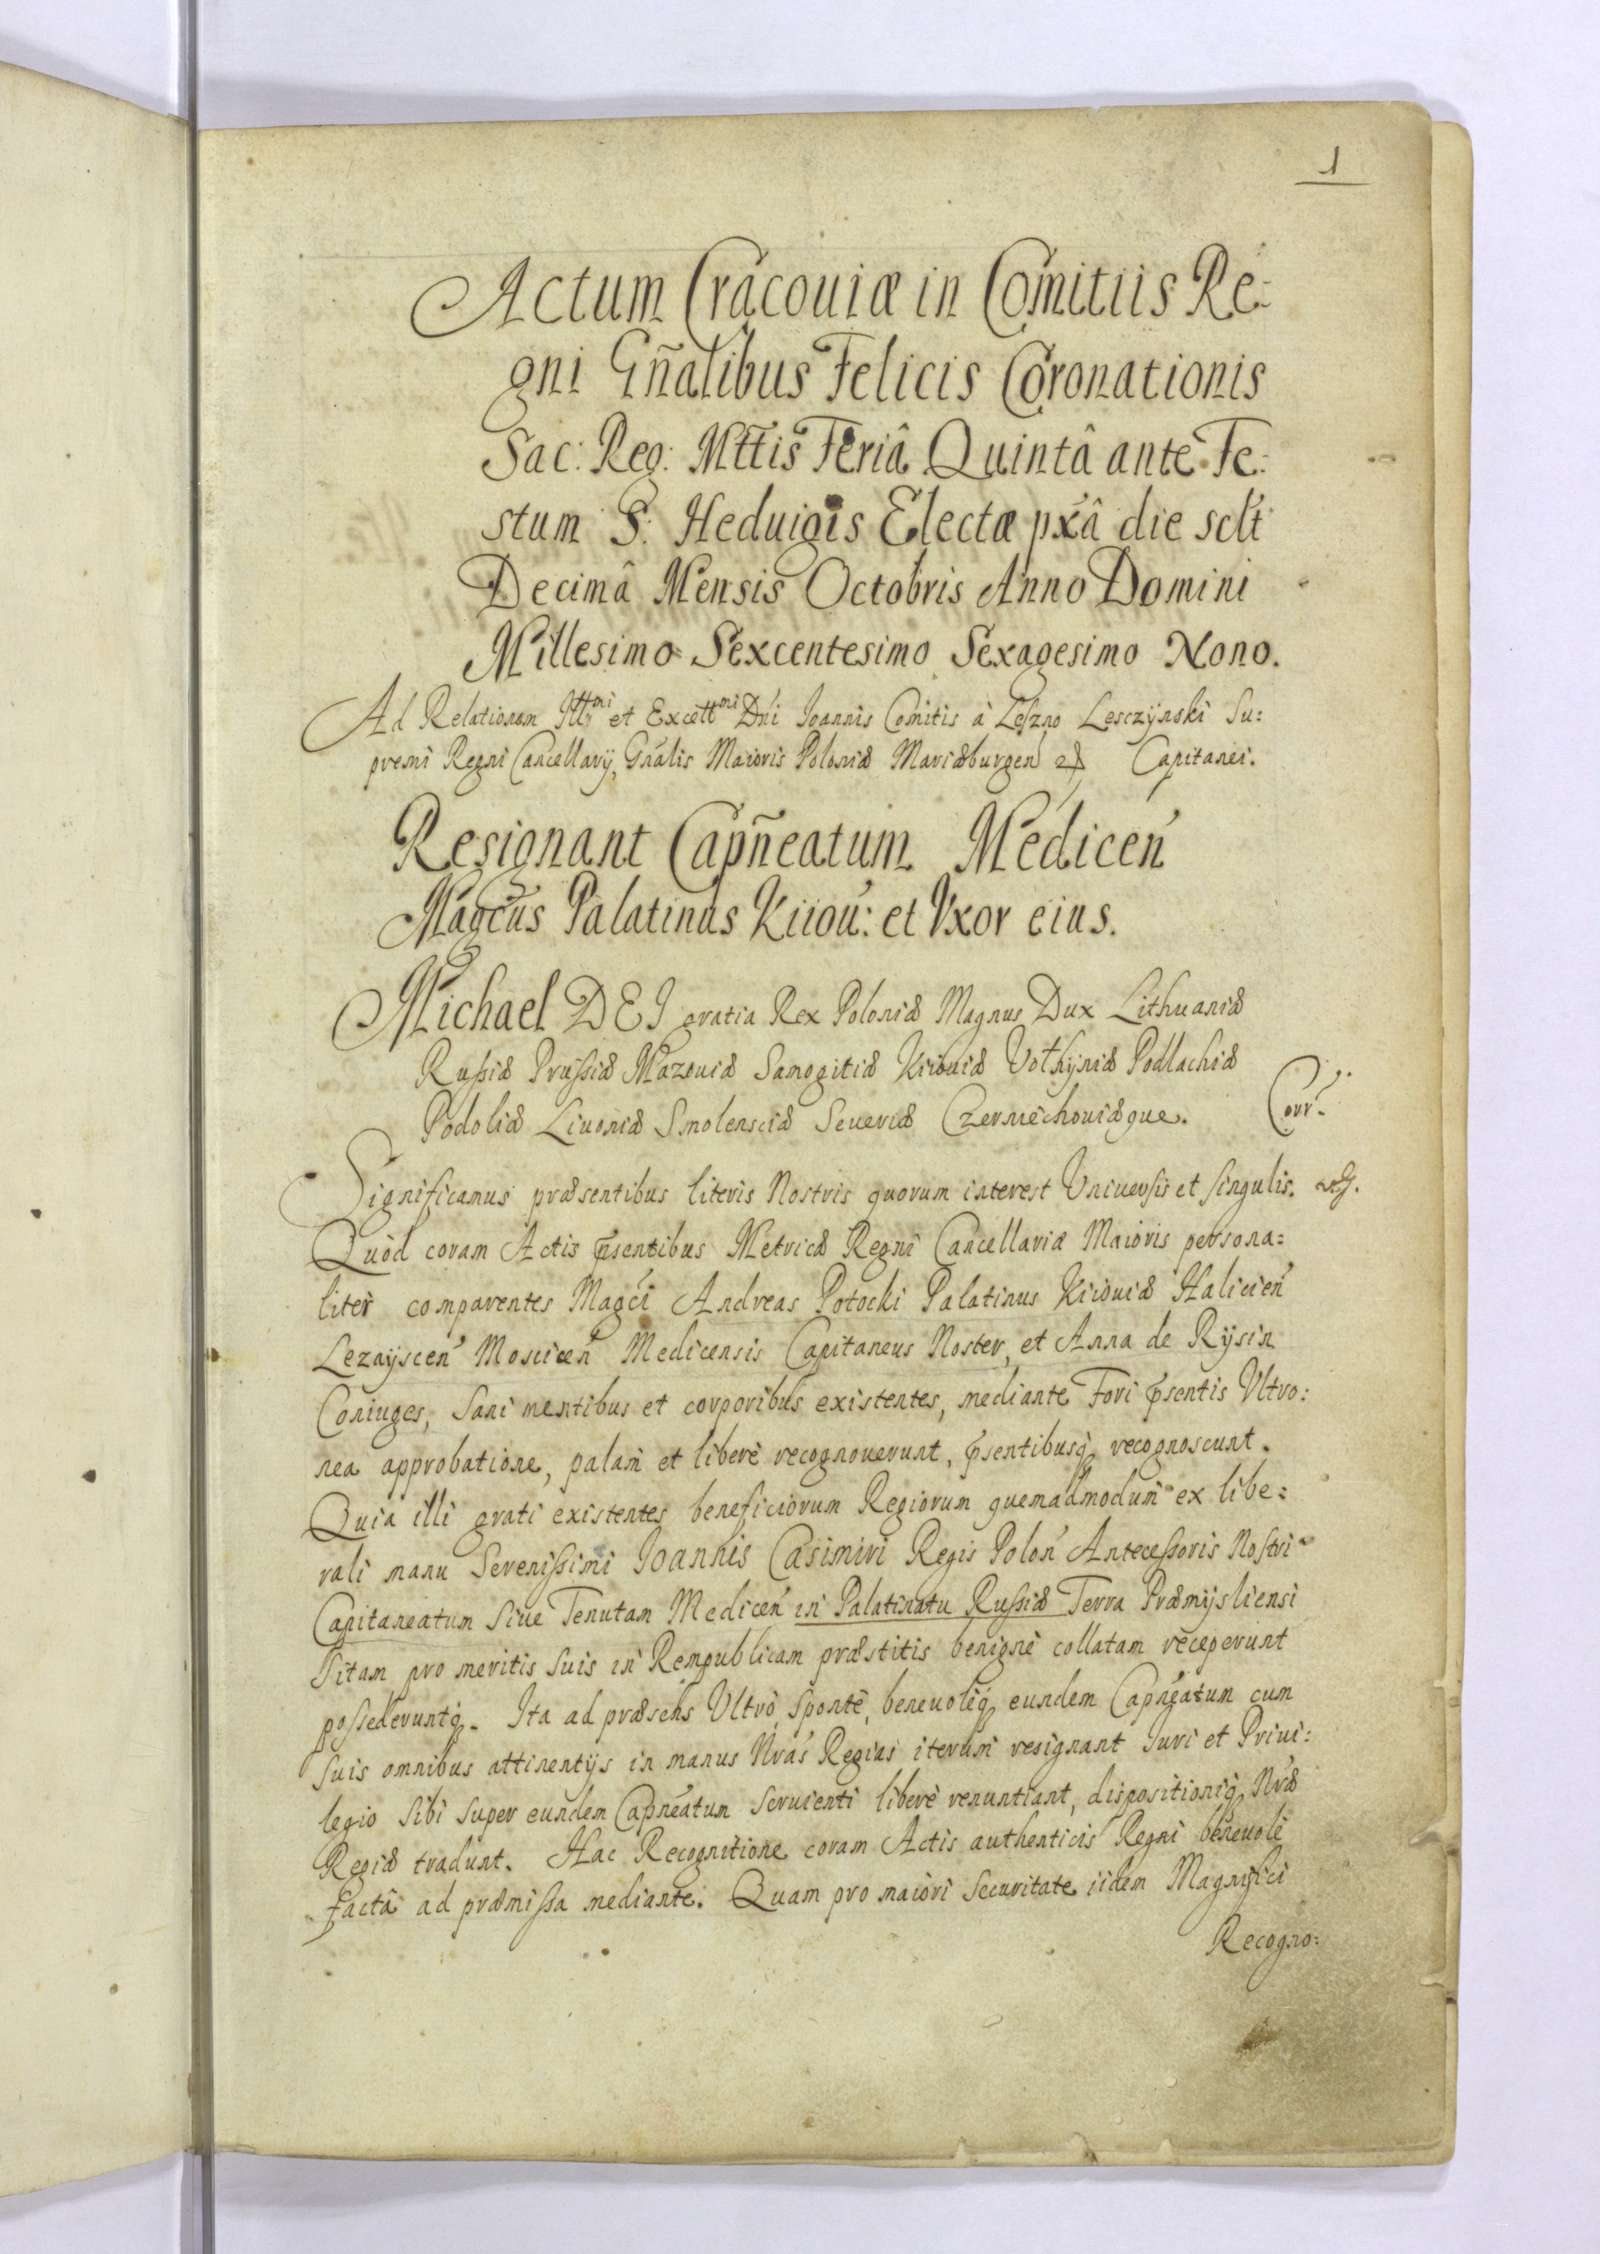 1
Actum Cracouiæ in Comitiis Re:
gni Gn̄alibus Felicis Coronationis
Sac: Reg: Mttis Feriâ Quintâ ante Fe:
stum S: Heduigis Electæ pxâ die sclt
Decimâ Mensis Octobris Anno Domini
Millesimo Sexcentesimo Sexagesimo Nono.
Ad Relationem Illmi et Excellmi Dni Ioannis Comitis à Leszno Lesczÿnski Su:
premi Regni Cancellarÿ, Gnâlis Maioris Poloniæ Mariæburgen Capitanei.
Resignant Capn̄eatum Medicen
Magcus Palatinus Kiiou: et Vxor eius.
Michael DEI gratia Rex Poloniæ Magnus Dux Lithuaniæ
Russiæ Prussiæ Mazouiæ Samogitiæ Kiiouiæ Volhÿniæ Podlachiæ
Podoliæ Liuoniæ Smolensciæ Seueriæ Czerniechouiæque.
Corr.
Significamus præsentibus literis Nostris quorum interest Vniuersis et singulis.
Quòd coram Actis p̄sentibus Metricæ Regni Cancellariæ Maioris persona=
liter comparentes Magci Andreas Potocki Palatinus Kiiouiæ Halicien
Lezaÿscen Moscicen Medicensis Capitaneus Noster, et Anna de Rÿsin
Coniuges, sani mentibus et corporibus existentes, mediante Fori p̄sentis Vltro:
nea approbatione, palam et liberè recognouerunt, p̄sentibusq recognoscunt.
Quia illi grati existentes beneficiorum Regiorum quemadmodum ex libe:
rali manu Serenissimi Ioannis Casimiri Regis Polon Antecessoris Nostri
Capitaneatum siue Tenutam Medicen in Palatinatu Russiæ Terra Præmÿsliensi
sitam pro meritis suis in Rempublicam præstitis benignè collatam receperunt
possederuntq. Ita ad præsens Vltrò, spontè, beneuoleq eundem Capneatum cum
suis omnibus attinentÿs in manus Nras Regias iterum resignant Iuri et Priui:
legio sibi super eundem Capneatum seruienti liberè renuntiant, dispositioniq Nræ
Regiæ tradunt. Hac Recognitione coram Actis authenticis Regni beneuolè
factâ ad præmissa mediante. Quam pro maiori securitate iidem Magnifici
Recogno: